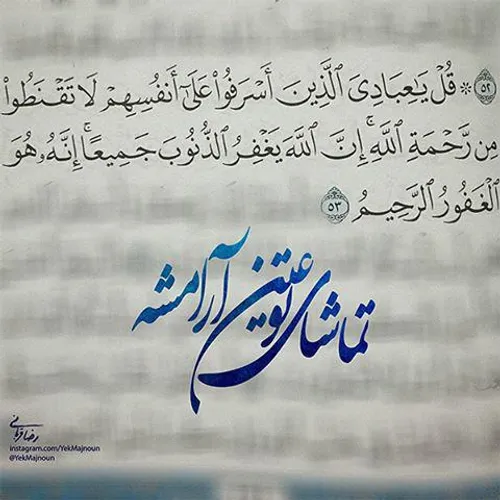 ۝٥٢ ۞ قُلْ يَٰعِبَادِىَ ٱلَّذِينَ أَسْرَفُوا۟ عَلَىٰٓ أَنفُسِهِمْ لَا تَقْنَطُوا۟
مِن رَّحْمَةِ ٱللَّهِ ۚ إِنَّ ٱللَّهَ يَغْفِرُ ٱلذُّنُوبَ جَمِيعًا ۚ إِنَّهُۥ هُوَ
ٱلْغَفُورُ ٱلرَّحِيمُ ۝٥٣
تماشای تو عین آرامشه
رضا قربانی
instagram.com/YekMajnoun
@YekMajnoun